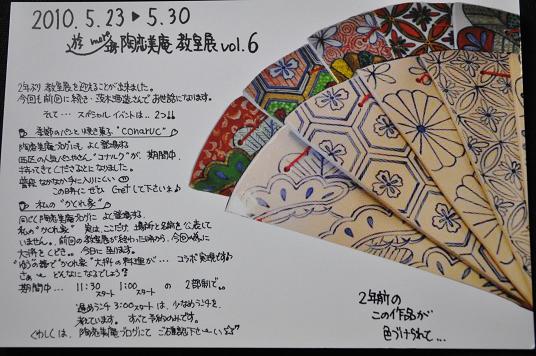 2010. 5.23 ▶ 5.30
陶恋美庵 教室展 vol.6
2年ぶり 教室展を迎えることが出来ました。
今回も前回に続き・茨木酒造さんでお世話になります。
そして… スペシャルイベントは… 2つ!!
季節のパンと焼き菓子 "conaruc"
陶恋美庵ブログにも よく登場する
西区の人気パンやさん "コナルク"が 期間中、
して下さることになりました。
普段 なかなか手に入りにくい
この時に ぜひ Getして下さいね♪
私の "かくれ家"
同じく 陶恋美庵ブログに よく登場する、
私の "かくれ家" 実は、ここだけ 場所と名前を公表して
いません。前回の教室展が終わった時から、今回の為に
大将をくどき。。 今日に至ります。
"かくれ家" 大将の料理が… コラボ実現です♪
さぁ〜 どんなに なるでしょう?
期間中… 11:30 スタート 1:00 スタート の 2部制で。。
遅めランチ 3:00スタート は、少なめランチを
考えています。 すべて予約のみです。
くわしくは、陶恋美庵ブログにて ご確認下さ〜い☆"
2年前の
この作品が
色づけられて…